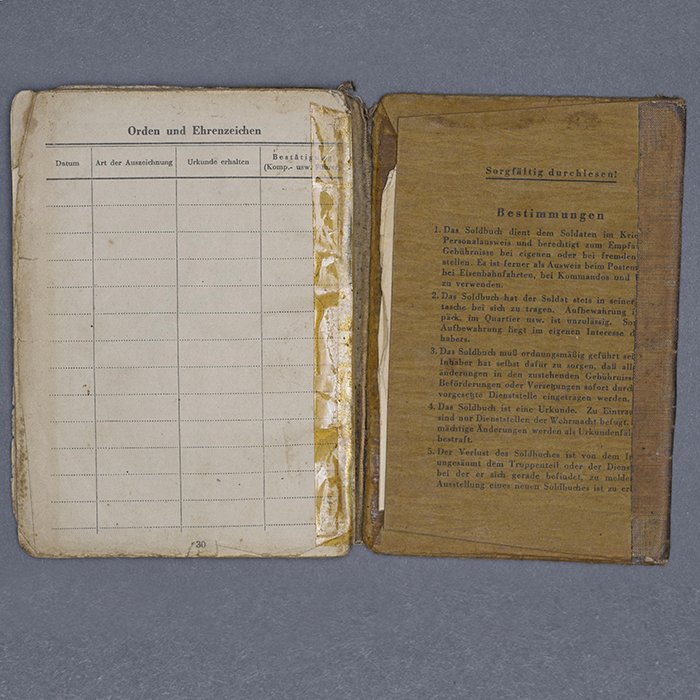 Orden und Ehrenzeichen
Datum
Art der Auszeichnung
Urkunde erhalten
Bestätig
(Komp.- usw.
30
Sorgfältig durchlesen!
Bestimmungen
1. Das Soldbuch dient dem Soldaten im Krie
Personalausweis und berechtigt zum Empfa
Gebührnisse bei eigenen oder bei fremden
stellen. Es ist ferner als Ausweis beim Postem
bei Eisenbahnfahrten, bei Kommandos und
zu verwenden.
2. Das Soldbuch hat der Soldat stets in seiner
tasche bei sich zu tragen. Aufbewahrung i
päck, im Quartier usw. ist unzulässig. Sor
Aufbewahrung liegt im eigenen Interesse d
habers.
3. Das Soldbuch muß ordnungsmäßig geführt sei
Inhaber hat selbst dafür zu sorgen, daß all
änderungen in den zustehenden Gebührnisse
Beförderungen oder Versetzungen sofort durch
vorgesetzte Dienststelle eingetragen werden.
4. Das Soldbuch ist eine Urkunde. Zu Eintrau
sind nur Dienststellen der Wehrmacht befugt.
mächtige Änderungen werden als Urkundenfäl
bestraft.
5. Der Verlust des Soldbuches ist von dem I
ungesäumt dem Truppenteil oder der Diens
bei der er sich gerade befindet, zu melde
Ausstellung eines neuen Soldbuches ist zu er